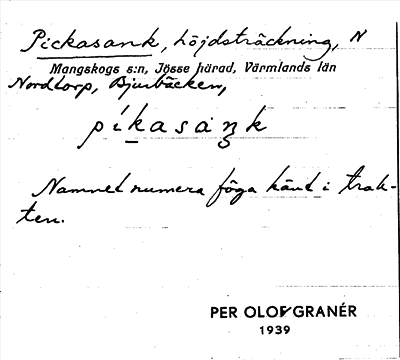 Pickasank, höjdsträckning, N
Mangskogs s:n, Jösse härad, Värmlands län
Nordtorp, Bjurbäcken,
píkasàŋk
Namnet numera föga känt i trak-
ten.
PER OLOF GRANÉR
1939